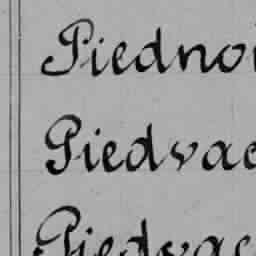 Piednoi
Piedvac
Piedvac